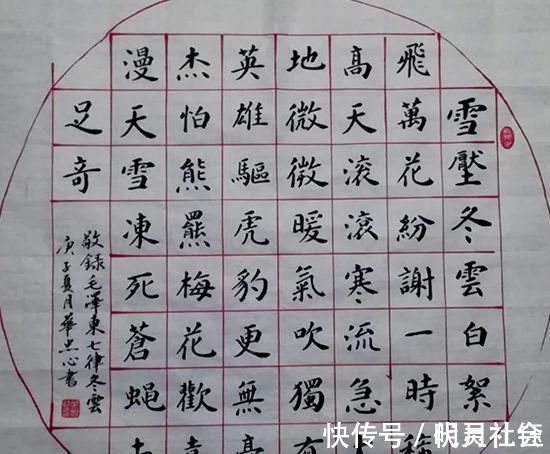 雪壓冬雲白絮
飛萬花紛謝一時
高天滾滾寒流急
地微微暖氣吹獨有
英雄驅虎豹更無
杰怕熊羆梅花歡
漫天雪凍死蒼蝇
足奇
敬録毛澤東七律冬雲
庚子夏月華忠心書
快传号